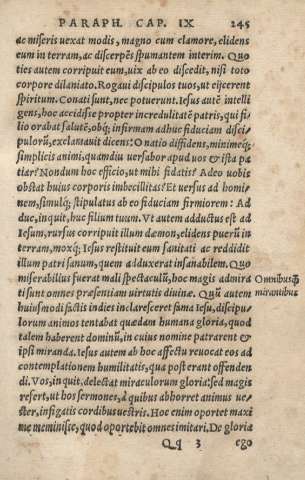 PARAPH. CAP. IX 245
ac miseris uexat modis, magno cum clamore, elidens
eum in terram, ac discerpẽs spumantem interim. Quo
ties autem corripuit eum, uix ab eo discedit, nisi toto
corpore dilaniato. Rogaui discipulos tuos, ut eijcerent
spiritum. Conati sunt, nec potuerunt. Iesus autẽ intelli
gens, hoc accidisse propter incredulitatẽ patris, qui fi
lio orabat salutẽ, obq; infirmam adhuc fiduciam disci
pulorũ, exclamauit dicens: O natio diffidens, minimeq;
simplicis animi, quamdiu uersabor apud uos & ista pa
tiar? Nondum hoc efficio, ut mihi fidatis? Adeo uobis
obstat huius corporis imbecillitas? Et uersus ad homi
nem, simulq; stipulatus ab eo fiduciam firmiorem: Ad
duc, inquit, huc filium tuum. Vt autem adductus est ad
Iesum, rursus corripuit illum dæmon, elidens puerũ in
terram, moxq; Iesus restituit eum sanitati ac reddidit
illum patri sanum, quem adduxerat insanabilem. Quo
miserabilius fuerat mali spectaculũ, hoc magis admira
ti sunt omnes præsentiam uirtutis diuinæ. Quũ autem
Omnibusq;
mirantibus
huiusmodi factis indies inclaresceret fama Iesu, discipu
lorum animos tentabat quædam humana gloria, quod
talem haberent dominũ, in cuius nomine patrarent &
ipsi miranda. Iesus autem ab hoc affectu reuocat eos ad
contemplationem humilitatis, qua post erant offenden
di. Vos, inquit, delectat miraculorum gloria: sed magis
refert, ut hos sermones, à quibus abhorret animus ue-
ster, infigatis cordibus uestris. Hoc enim oportet maxi
me meminisse, quod oportebit omnes imitari. De gloria
Qq 3 ego